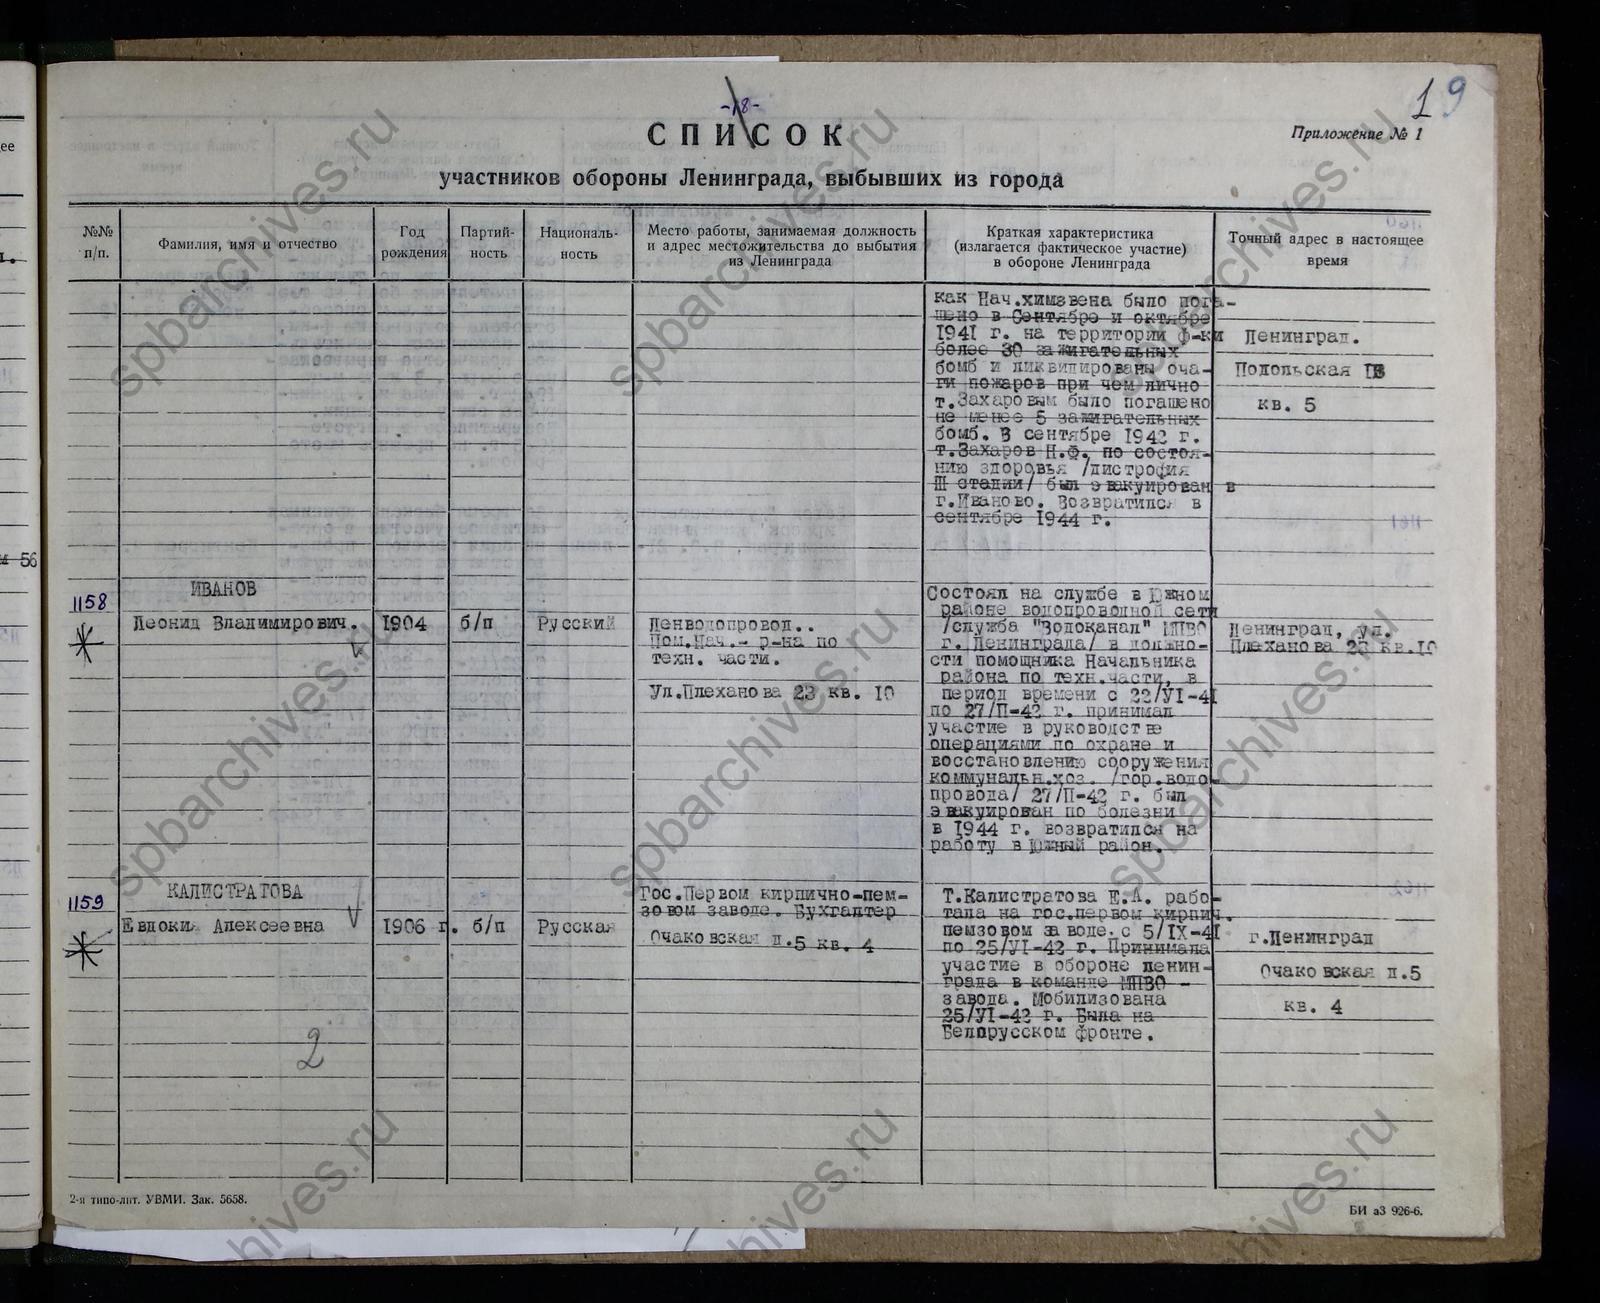 19
-18-
СПИСОК
Приложение № 1
участников обороны Ленинграда, выбывших из города
№№ п/п.
Фамилия, имя и отчество
Год рождения
Партий-
ность
Националь-
ность
Место работы, занимаемая должность
и адрес местожительства до выбытия
из Ленинграда
Краткая характеристика
(излагается фактическое участие)
в обороне Ленинграда
Точный адрес в настоящее
время
как Нач.химзвена было пога-
шено в Сентябре и октябре
1941 г. на территории ф-ки
более 30 зажигательных
бомб и ликвидированы оча-
ги пожаров при чем лично
т.Захаровым было погашено
не менее 5 зажигательных
бомб. В сентябре 1942 г.
т.Захаров Н.Ф. по состоя-
нию здоровья /дистрофия
III стадии/ был эвакуирован в
г.Иваново. Возвратился в
сентябре 1944 г.
Ленинград.
Подольская
кв. 5
м 56
1158
ИВАНОВ
Леонид Владимирович.
1904
б/п
Русский
Ленводопровод..
Пом.Нач.- р-на по
техн. части.
Ул.Плеханова 23 кв. 10
Состоял на службе в Южном
районе водопроводной сети
/служба "Водоканал" МПВО
г. Ленинграда/ в должно-
сти помощника Начальника
района по техн.части, в
период времени с 22/VI-41
по 27/П-42 г. принимал
участие в руководстве
операциями по охране и
восстановлению сооружения
коммунальн.хоз. /гор.водо-
провода/ 27/П-42 г. был
эвакуирован по болезни
в 1944 г. возвратился на
работу в Южный район.
Ленинград, ул.
Плеханова 23 кв.10
1159
КАЛИСТРАТОВА
Евдокия Алексеевна
1906 г.
б/п
Русская
Гос.Первом кирпично-пем-
зовом заводе. Бухгалтер
Очаковская д.5 кв. 4
Т.Калистратова Е.А. рабо-
тала на гос.первом кирпич.
пемзовом заводе. с 5/IX-41
по 25/VI-42 г. Принимала
участие в обороне ленин-
града в команде МПВО -
завода. Мобилизована
25/VI-42 г. Была на
Белорусском фронте.
г.Ленинград
Очаковская д.5
кв. 4
2
2-я типо-лит. УВМИ. Зак. 5658.
БИ а3 926-6.
spbarchives.ru